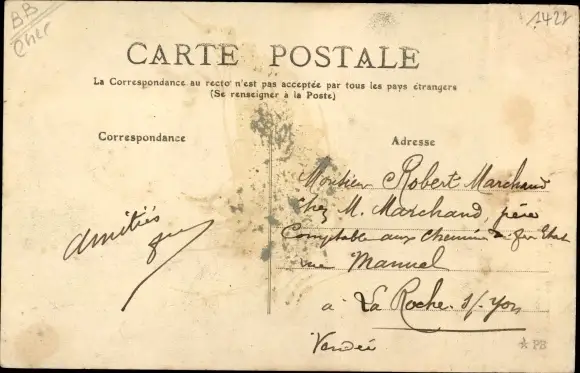 BB
Cher
1428
CARTE POSTALE
La Correspondance au recto n'est pas acceptée par tous les pays étrangers
(Se renseigner à la Poste)
Correspondance
Adresse
Amitiés
Monsieur Robert Marchand
Chez M. Marchand, père
Comptable aux Chemins de fer Etat
rue Manuel
à La Roche s/ Yon
Vendée
PB